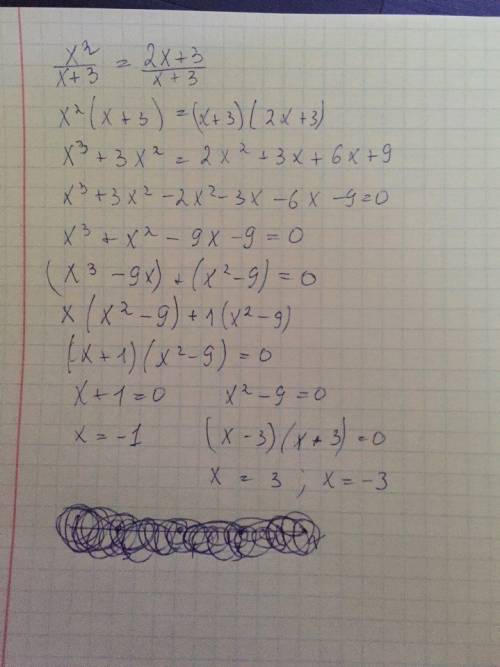 x²/(x+3) = (2x+3)/(x+3)
x²(x+3) = (x+3)(2x+3)
x³+3x² = 2x²+3x+6x+9
x³+3x²-2x²-3x-6x-9=0
x³+x²-9x-9=0
(x³-9x)+(x²-9)=0
x(x²-9)+1(x²-9)
(x+1)(x²-9)=0
x+1=0 x²-9=0
x=-1 (x-3)(x+3)=0
x=3; x=-3